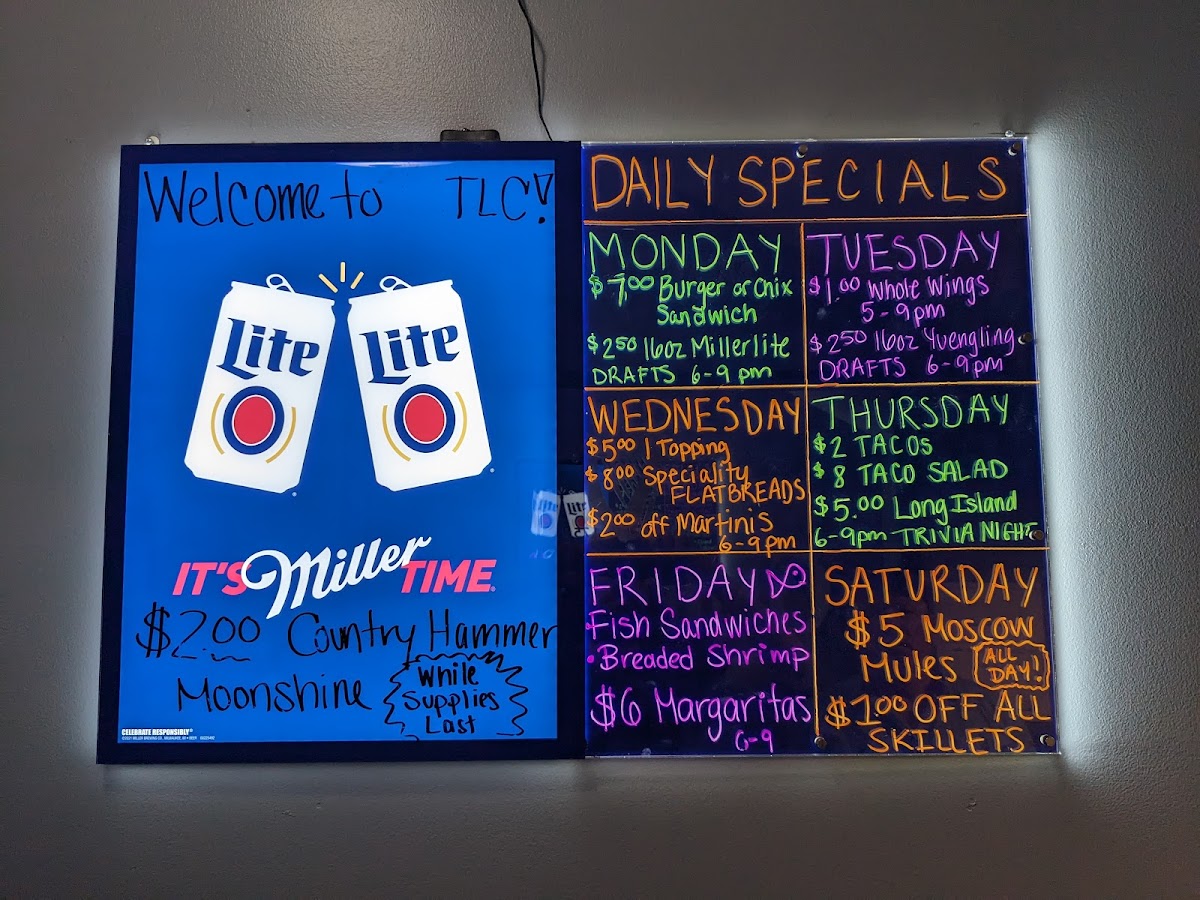 Welcome to TLC!
Lite
Lite
IT'S Miller TIME.
$2.00 Country Hammer
Moonshine
While
Supplies
Last
CELEBRATE RESPONSIBLY®
DAILY SPECIALS
MONDAY
$7.00 Burger or Chix
Sandwich
$2.50 16oz Millerlite
DRAFTS 6-9 pm
TUESDAY
$1.00 Whole Wings
5-9pm
$2.50 16oz Yuengling
DRAFTS 6-9pm
WEDNESDAY
$5.00 1 Topping
$8.00 Speciality
FLATBREADS
$2.00 off Martinis
6-9pm
THURSDAY
$2 TACOS
$8 TACO SALAD
$5.00 Long Island
6-9pm TRIVIA NIGHT
FRIDAY
Fish Sandwiches
• Breaded Shrimp
$6 Margaritas
6-9
SATURDAY
$5 Moscow
Mules ALL
DAY!
$1.00 OFF ALL
SKILLETS